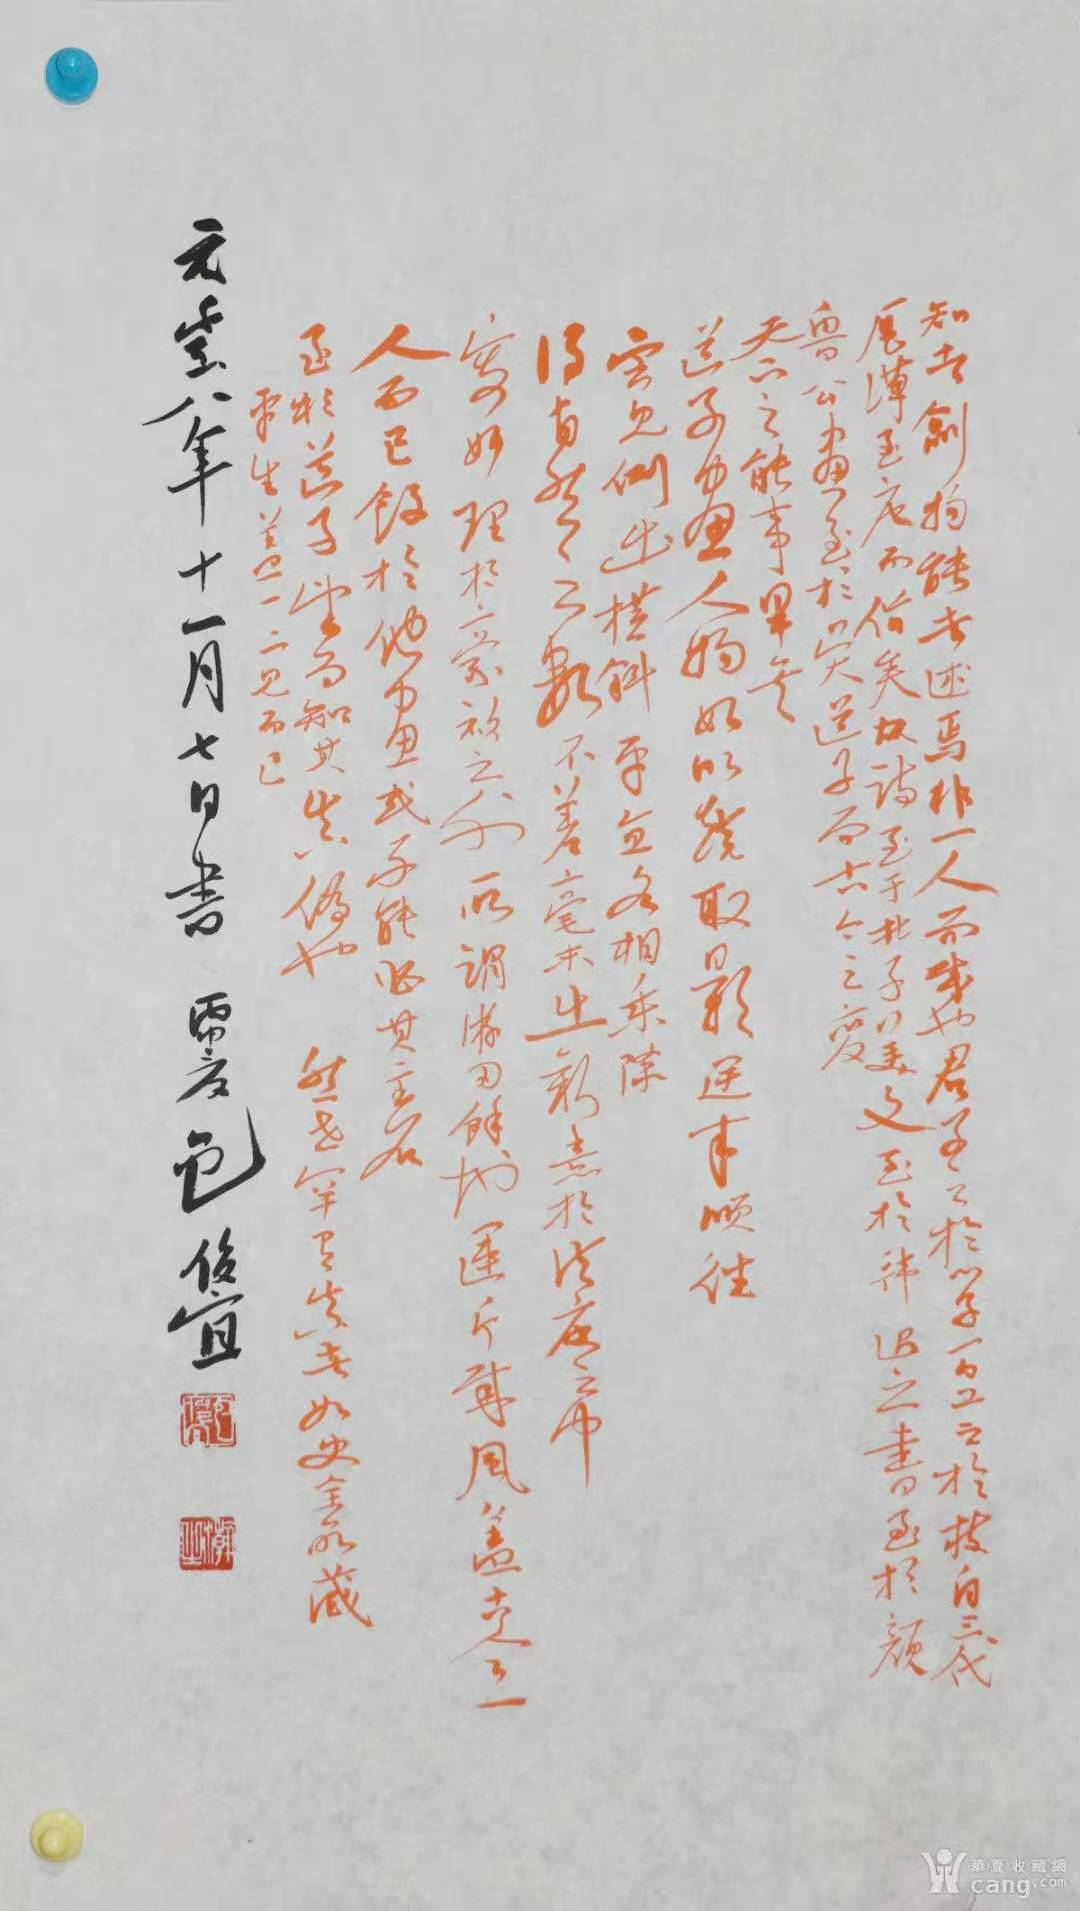 知者創物能者述焉非一人而成也君子之於學百工之於技自三代
歷漢至唐而備矣故詩至于杜子美文至於韓退之書至於顏
魯公畫至於吳道子而古今之變
天下之能事畢矣
道子畫人物如以燈取影逆來順往
旁見側出橫斜平直各相乘除
得自然之數不差毫末出新意於法度之中
寄妙理於豪放之外所謂游刃餘地運斤成風蓋古今一
人而已余於他畫或不能必其主名
至於道子望而知其真偽也 然世罕有真者如史全叔藏
平生蓋一二見而已
元豐八年十一月七日書 包俊宜
華夏收藏網
cang.com